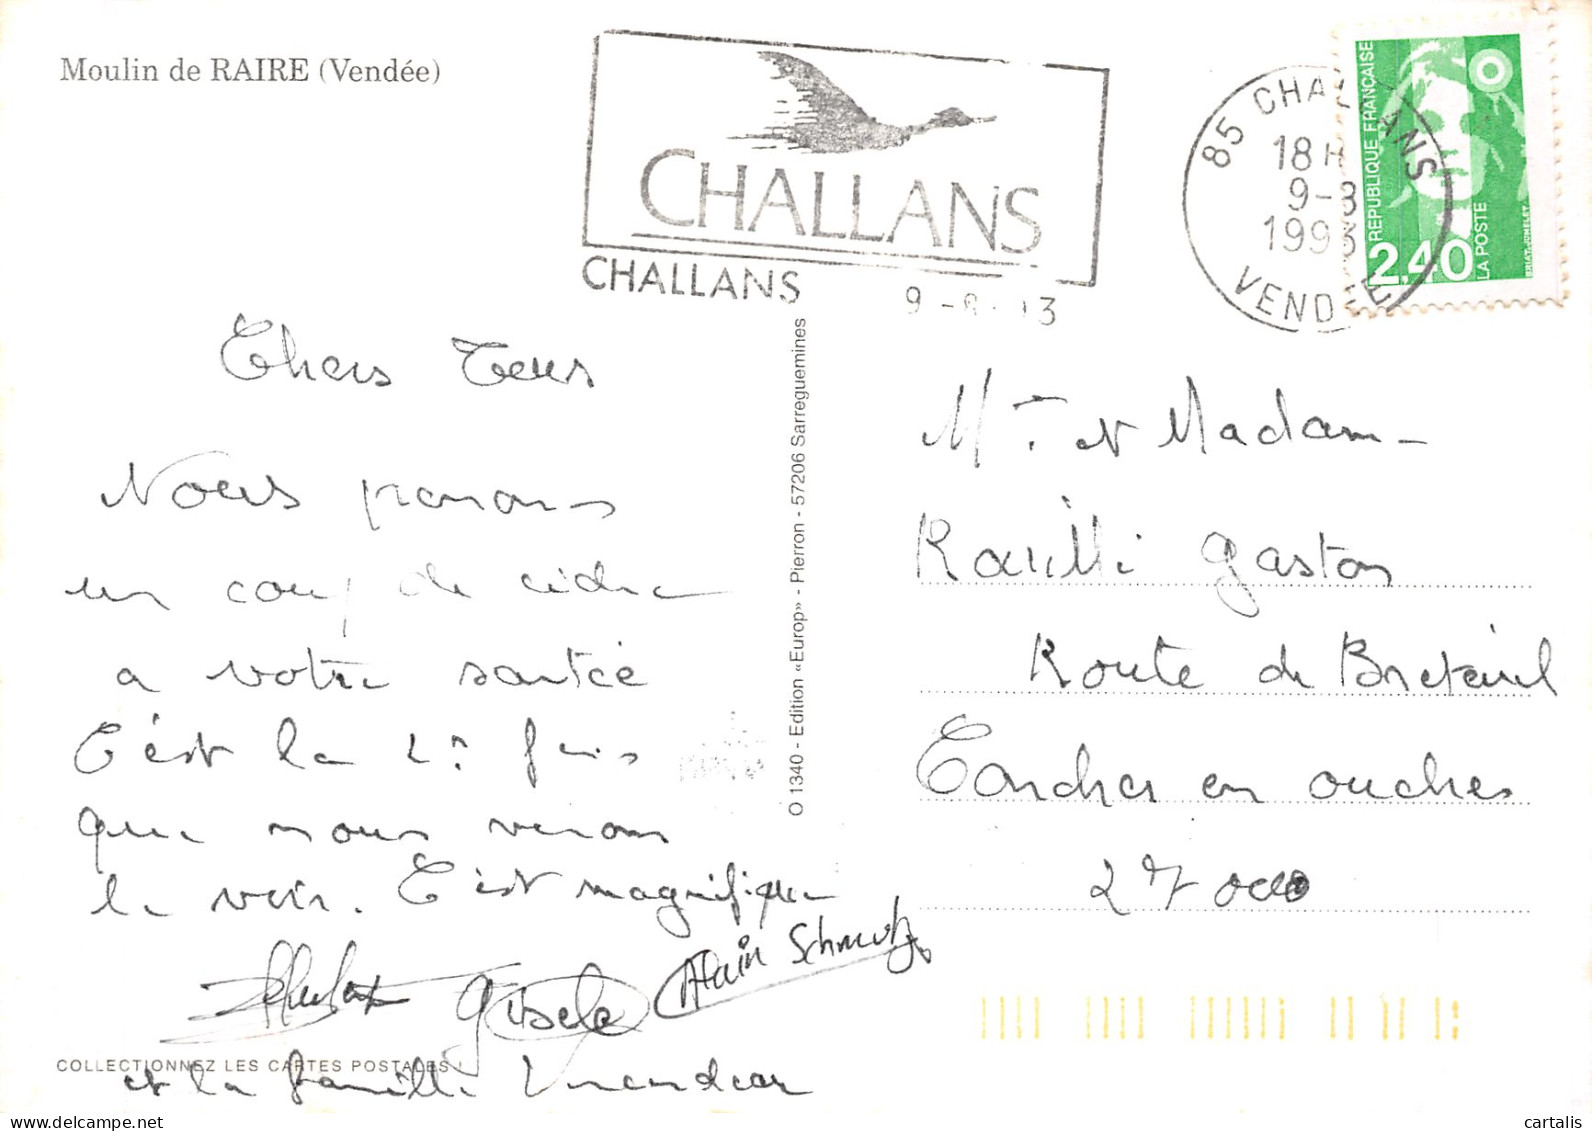 Moulin de RAIRE (Vendée)
CHALLANS
CHALLANS
85 CHALLANS
18H
9-8
1993
VENDÉE
REPUBLIQUE FRANÇAISE
2,40
LA POSTE
Chers Tous
Nous prenons
un coup de cidre
a votre santée
C'est la 2e fois
que nous venons
le voir. C'est magnifique
Gisele
Alain Schmutz
et la famille
COLLECTIONNEZ LES CARTES POSTALES !
O 1340 - Edition «Europ» - Pierron - 57206 Sarreguemines
Mr et Madame
Gaston
Route de Breteuil
Condres en ouches
27000
cartalis